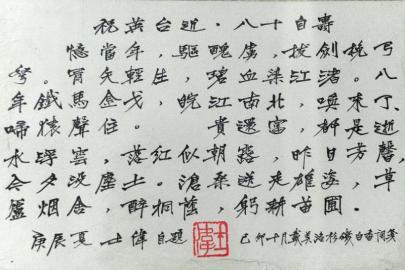 祝英台近·八十自壽
憶當年,驅醜虜,拔劍挽弓
弩。冐矢輕生,碧血染江渚。八
年鐵馬金戈,皖江南北,喚來了、
啼猿聲住。 貴還富,都是逝
水浮雲,落紅似朝露,昨日芳馨,
今夕没塵土。滄桑送走雄姿,草
廬烟舍,醉桐蔭,躬耕苗圃。
庚辰夏 士偉自題 己卯十月載美洛杉磯白香詞